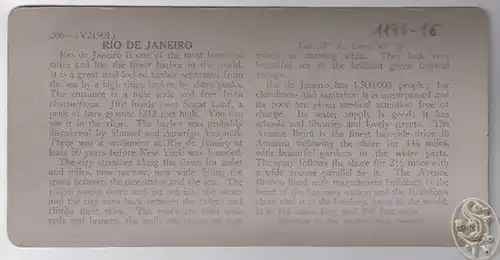 306—(V21901)
1196-16
RIO DE JANEIRO
Rio de Janeiro is one of the most beautiful
cities and has the finest harbor in the world.
It is a great land-locked harbor separated from
the sea by a high ridge broken by sharp peaks.
The entrance is a mile wide and free from
obstructions. Just inside rises Sugar Loaf, a
peak of bare granite 1212 feet high. You can
see it in the view. The harbor was probably
discovered by Manuel and Amerigo Vespucci.
There was a settlement at Rio de Janeiro at
least 50 years before New York was founded.
The city stretches along the shore for miles
and miles, now narrow, now wide filling the
space between the mountains and the sea. The
and the city runs back between the ridges and
climbs their sides. The roofs are tiled with
reds and browns, the walls are cream or
tinted in dazzling white. They look very
beautiful set in the brilliant green tropical
foliage.
Rio de Janeiro has 1,500,000 people; for
cleanliness and sanitation it is unsurpassed and
its poor are given medical attention free of
charge. Its water supply is good; it has
schools and libraries and lovely streets. The
Avenue Beira is the finest bayside drive in
America following the shore for 4½ miles
with beautiful gardens in the wider parts.
The quay follows the shore for 2½ miles with
a wide avenue parallel to it. The Avenue
Branco lined with magnificent buildings is the
heart of the business section and the Brazilians
claim that it is the loveliest street in the world.
It is 1¼ miles long and 108 feet wide.